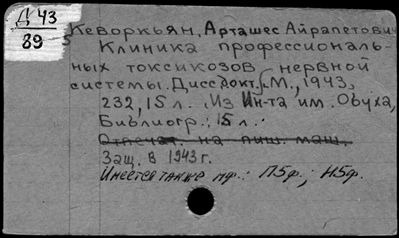 Д 43
89
Кеворкьян, Арташес Айрапетович
Клиника профессиональ-
ных токсикозов нервной
системы. Дисс. докт. М., 1943,
232, 15 л. Из Ин-та им. Обуха,
Библиогр.: 15 л.
Отпечат. на пиш. маш.
Защ. в 1943 г.
Имеется также мф.: П5ф.; Н5ф.